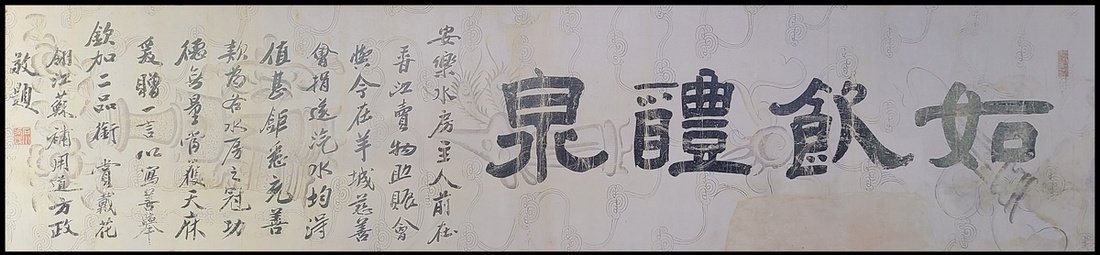 如飲醴泉
安樂水房主人前在
香江賣物助賑會
與今在羊城慈善
會捐送汽水均淂
值甚鉅悉充善
款為各水房之冠功
德無量當獲天庥
爰贈一言以寫善舉
欽加二品銜賞戴花
翎江蘇補用道方政
敬題